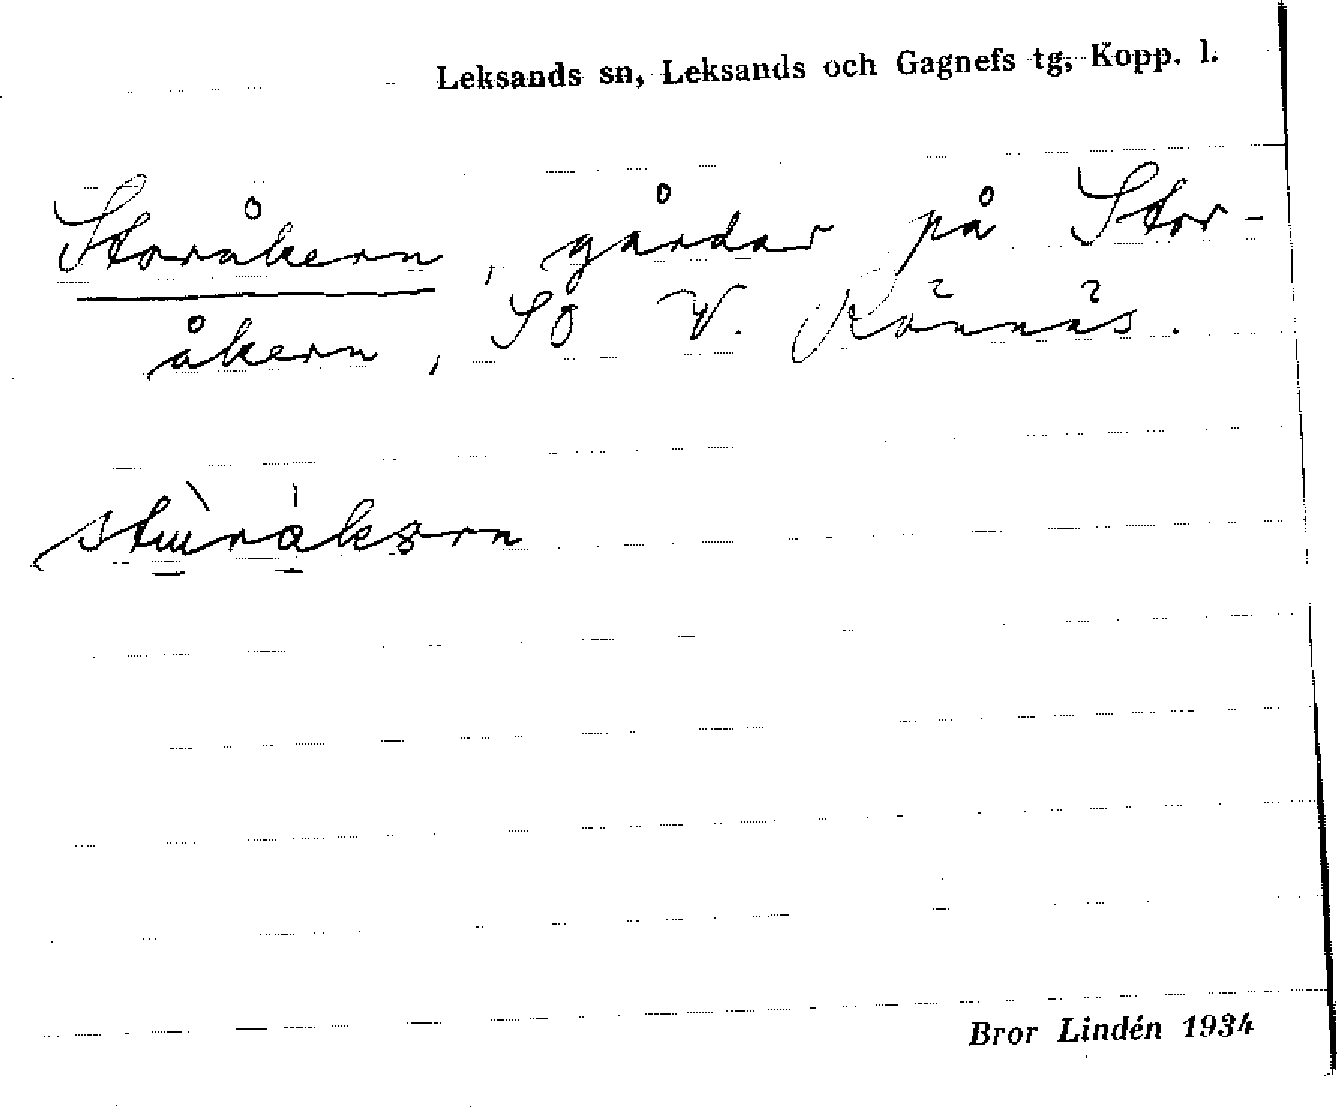 Leksands sn, Leksands och Gagnefs tg, Kopp. l.
Storåkern, gårdar på Stor-
åkern, SÖ V. Rönnäs.
Bror Lindén 1934